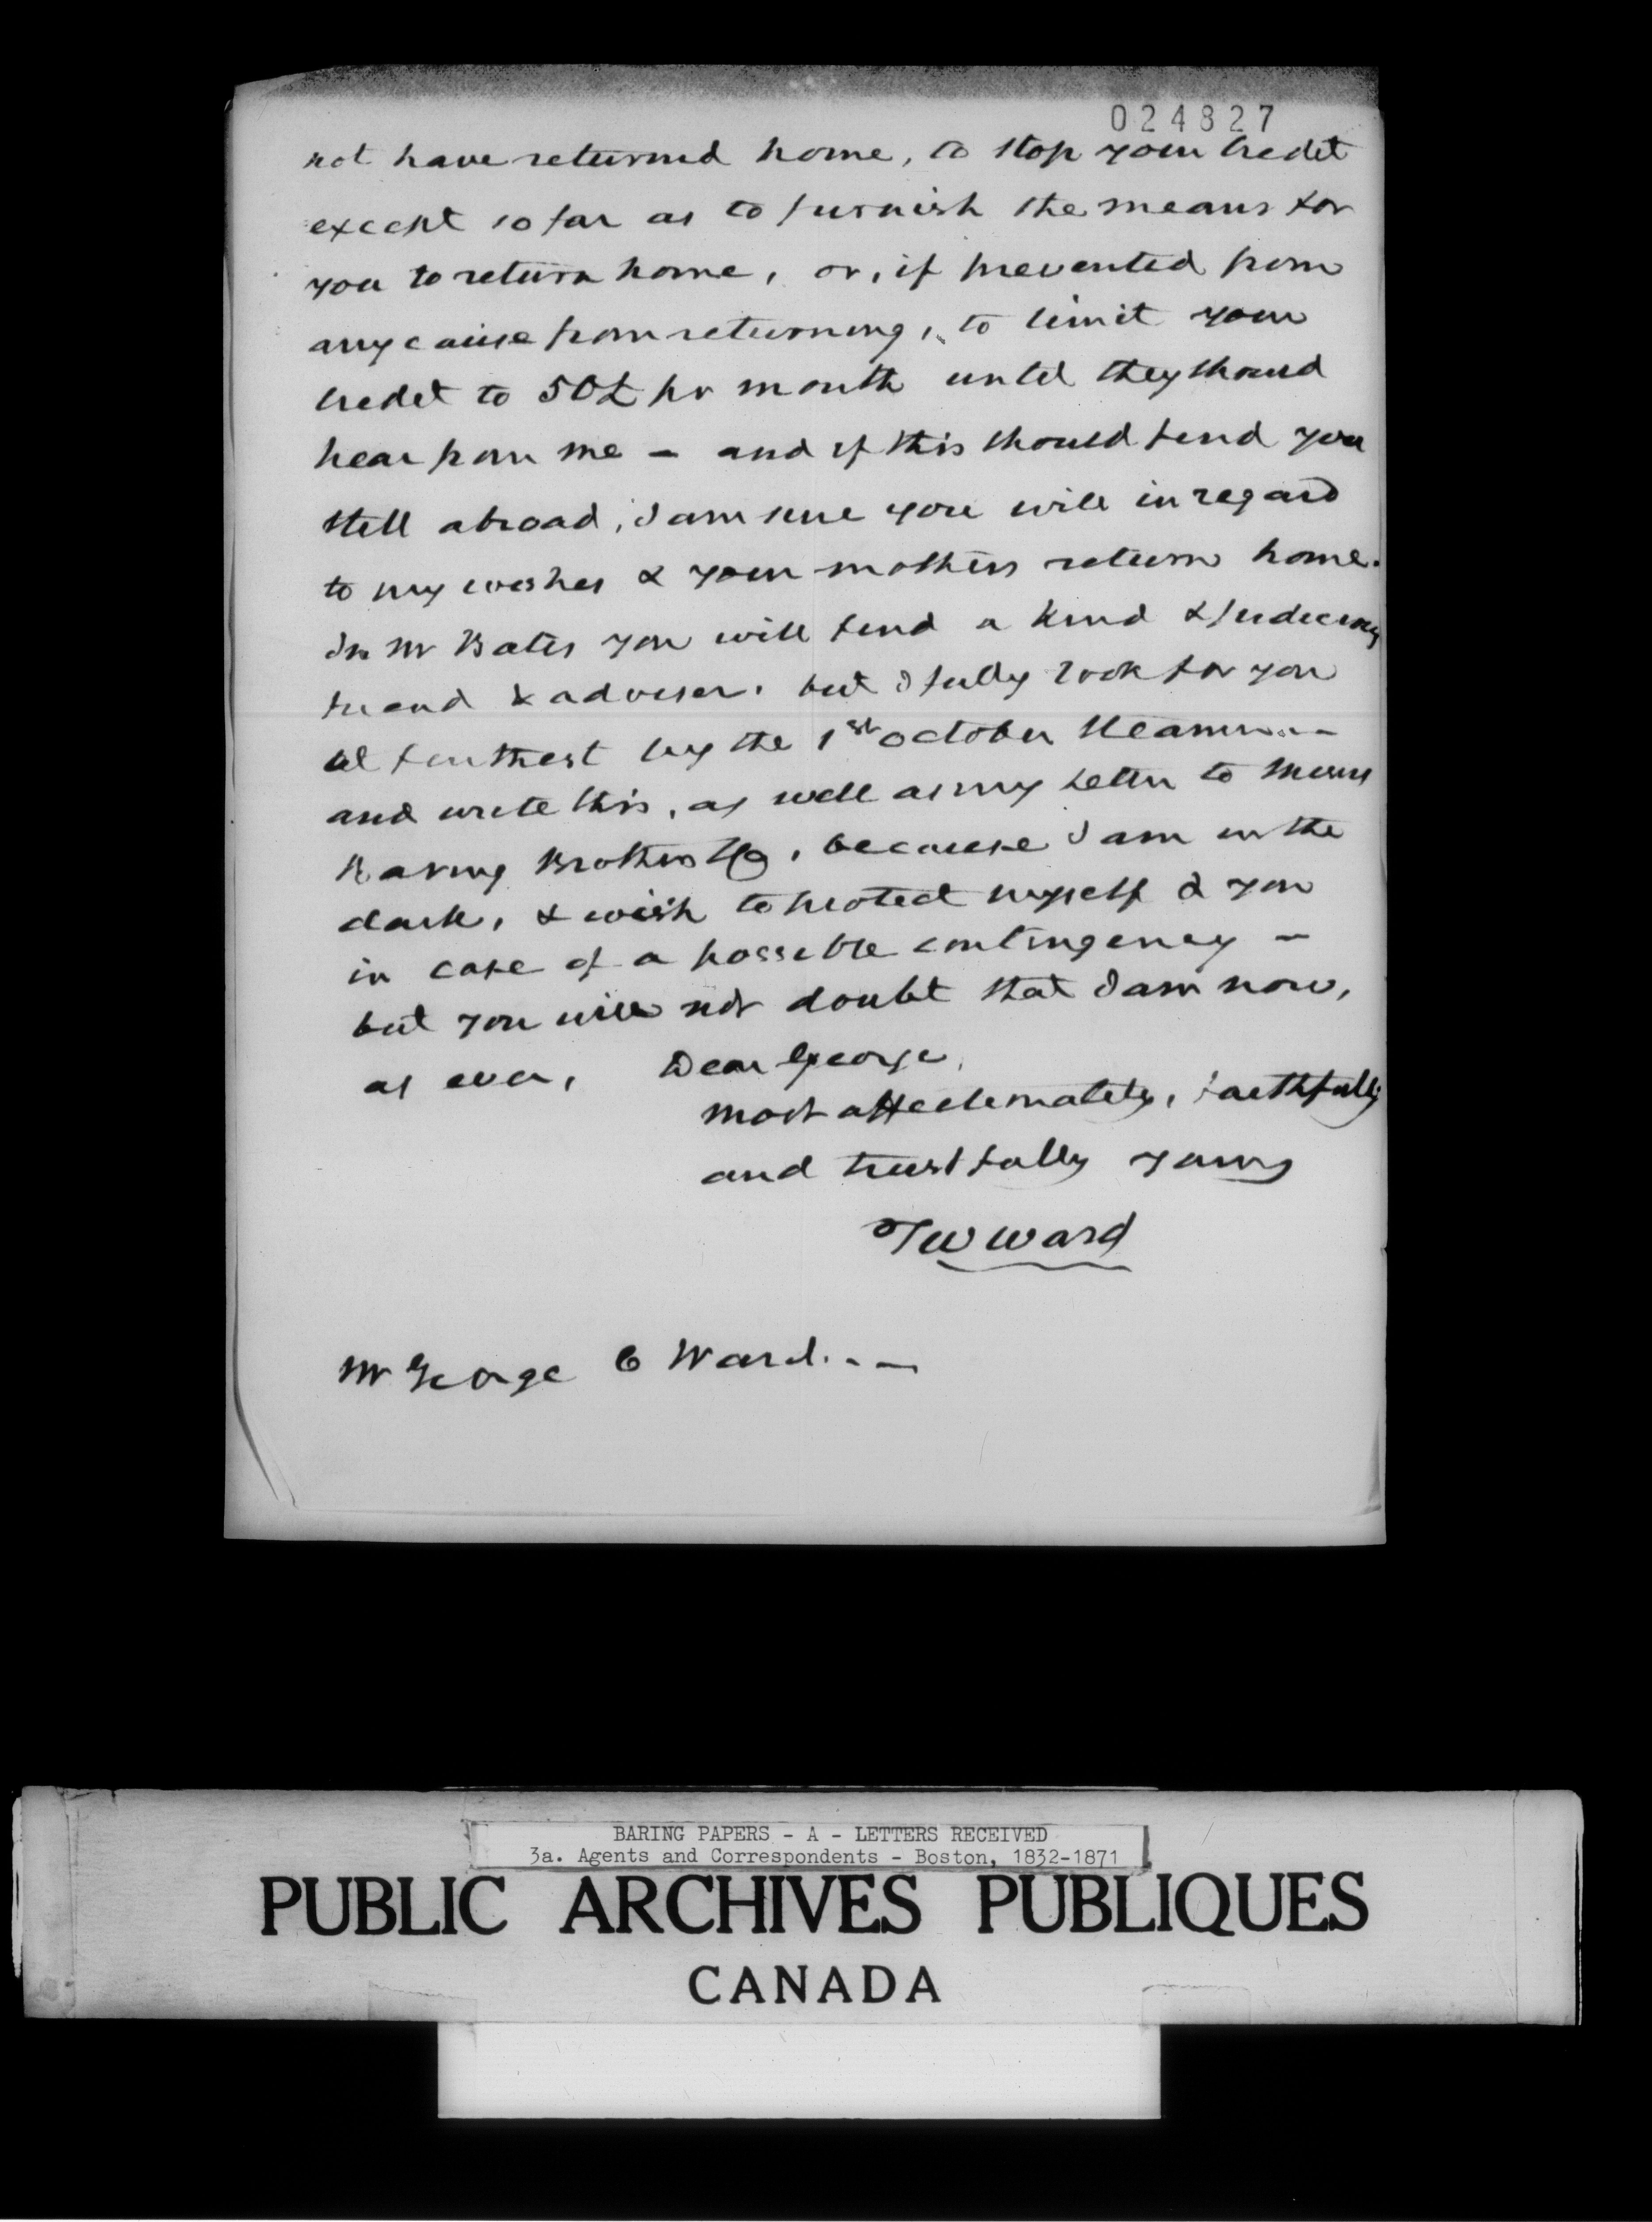 024827
not have returned home, to stop your credit
except so far as to furnish the means for
you to return home, or, if prevented from
any cause from returning, to limit your
credit to 50£ pr month until they should
hear from me — and if this should find you
still abroad, I am sure you will in regard
to my wishes & your mothers return home.
In Mr Bates you will find a kind & judicious
friend & adviser. but I fully look for you
at furthest by the 1st October Steamer —
and write this, as well as my letter to Messrs
Baring Brothers & Co, because I am in the
dark, & wish to protect myself & you
in case of a possible contingency —
but you will not doubt that I am now,
as ever, Dear George,
most affectionately, faithfully
and trustfully yours
TW Ward
Mr George C Ward. - —
BARING PAPERS - A - LETTERS RECEIVED
3a. Agents and Correspondents - Boston, 1832-1871
PUBLIC ARCHIVES PUBLIQUES
CANADA